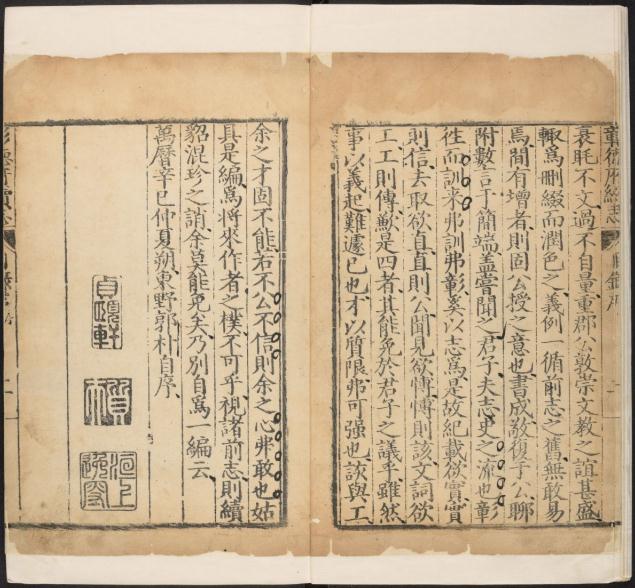 衰眊不文過不自量重郡公敦崇文教之誼甚盛
輙爲刪綴而潤色之義例一循前志之舊無敢易
焉間有增者則固公授之意也書成敬復于公聊
附數言于簡端蓋嘗聞之君子夫志史之流也彰
徃而訓來弗訓弗彰奚以志爲是故紀載欲實實
則信去取欲直直則公聞見欲愽愽則該文詞欲
工工則傳歉是四者其能免於君子之議乎雖然
事以義起難遽已也才以質限弗可强也該與工
余之才固不能若不公不信則余之心弗敢也姑
具是編爲將來作者之樸不可乎視諸前志則續
貂混珍之誚余莫能免矣乃别自爲一編云
萬曆辛巳仲夏朔東野郭朴自序